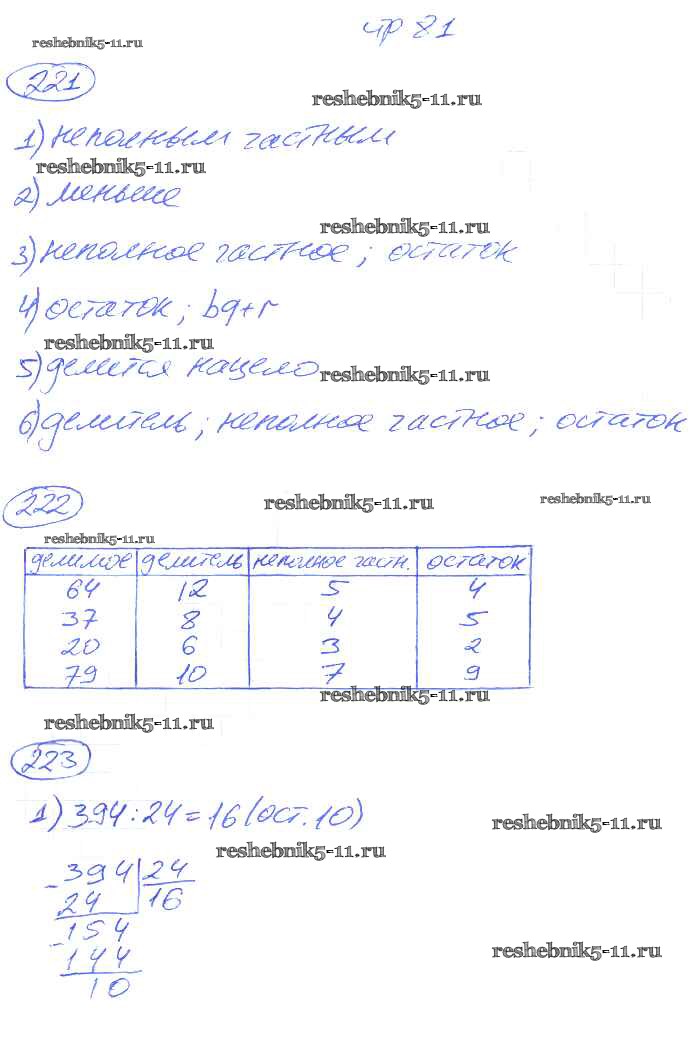 стр 81
reshebnik5-11.ru
221
reshebnik5-11.ru
1) неполным частным
reshebnik5-11.ru
2) меньше
reshebnik5-11.ru
3) неполное частное; остаток
4) остаток; bq+r
reshebnik5-11.ru
5) делится нацело
reshebnik5-11.ru
6) делитель; неполное частное; остаток
222
reshebnik5-11.ru
reshebnik5-11.ru
reshebnik5-11.ru
делимое делитель неполное частн. остаток
64 12 5 4
37 8 4 5
20 6 3 2
79 10 7 9
reshebnik5-11.ru
reshebnik5-11.ru
223
1) 394:24=16(ост.10)
reshebnik5-11.ru
reshebnik5-11.ru
- 394 24
24 16
- 154
144
reshebnik5-11.ru
10